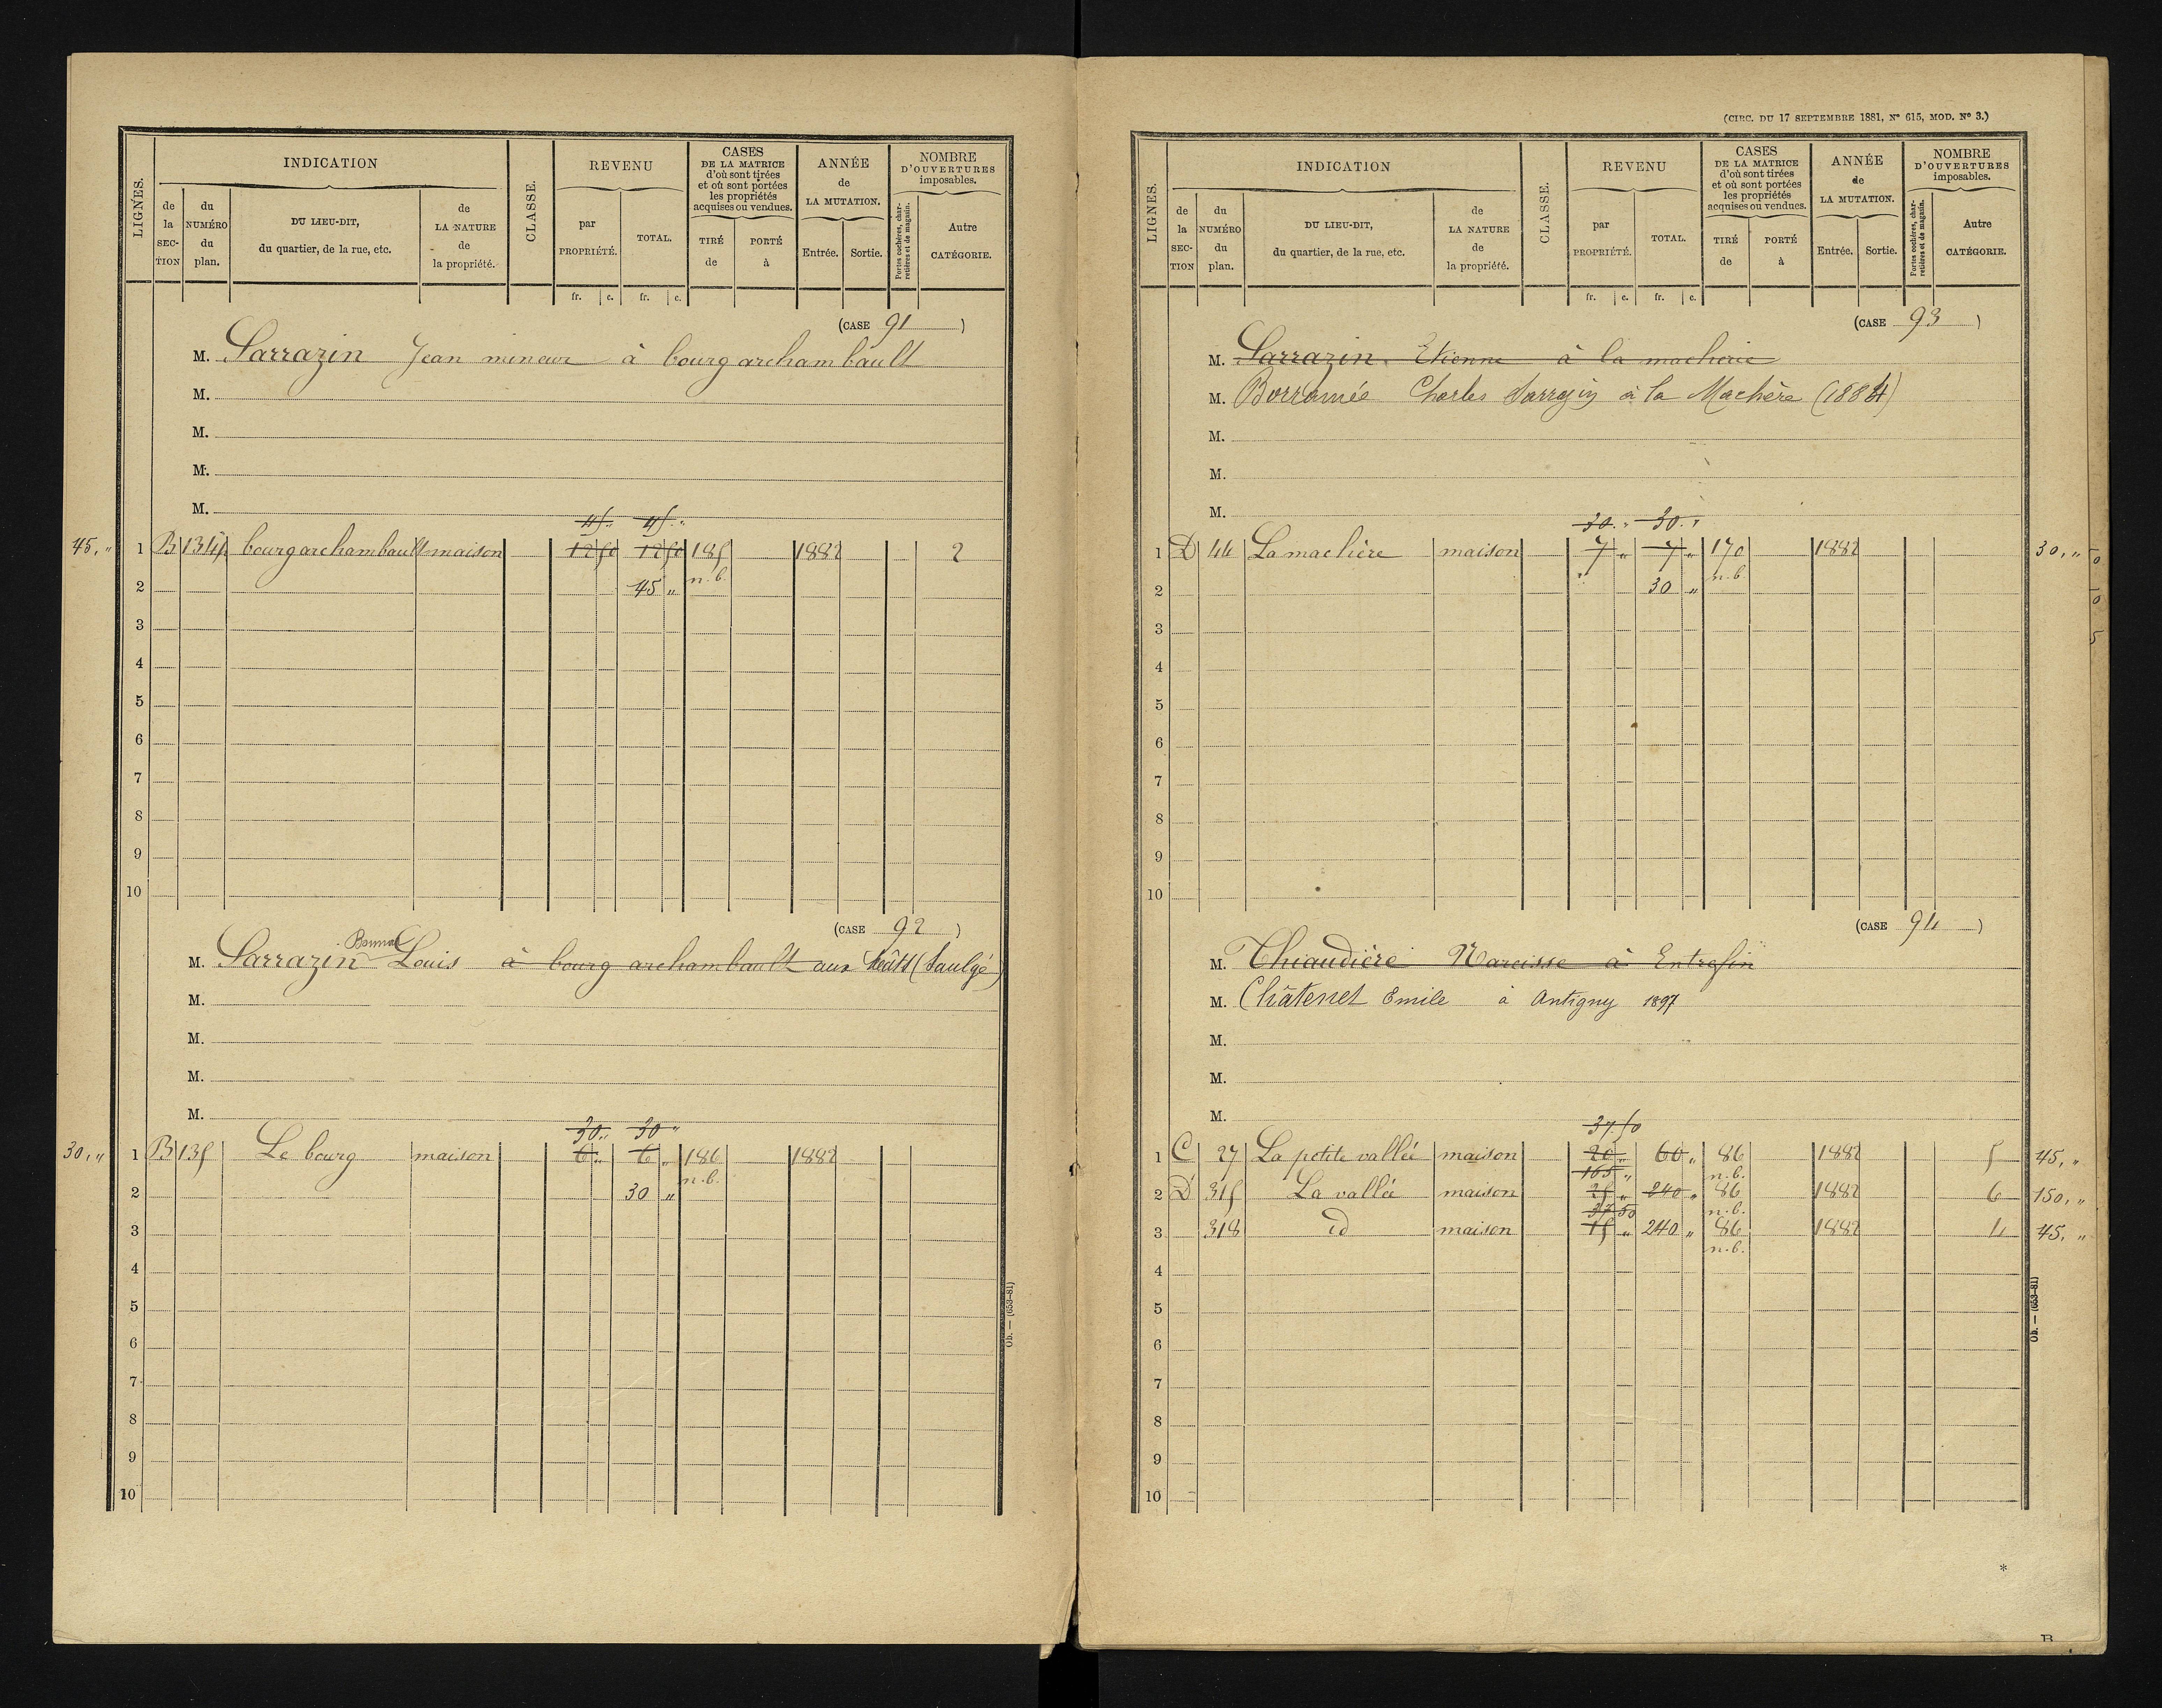 LIGNES.
INDICATION
de la SECTION
du NUMÉRO du plan.
DU LIEU-DIT, du quartier, de la rue, etc.
de LA NATURE de la propriété.
CLASSE.
REVENU
par PROPRIÉTÉ.
TOTAL.
CASES DE LA MATRICE d'où sont tirées et où sont portées les propriétés acquises ou vendues.
TIRÉ de
PORTÉ à
ANNÉE de LA MUTATION.
Entrée.
Sortie.
NOMBRE D'OUVERTURES imposables.
Portes cochères, charretières et de magasin.
Autre CATÉGORIE.
fr. c. fr. c.
(CASE 91 )
M. Sarrazin Jean mineur à bourgarchambault
M.
M.
M.
M.
45 " 45 "
45, " 1 B 134 bourgarchambault maison 12 50 12 50 185 1882 2
n.b.
2 45 "
3
4
5
6
7
8
9
10
(CASE 92 )
M. Sarrazin Louis à bourg archambault aux (Saulgé)
M.
M.
M.
M.
30 " 30 "
30, " 1 B 135 Le bourg maison 6 " 6 " 186 1882
n.b.
2 30 "
3
4
5
6
7
8
9
10
Ob. — (653-81)
(CIRC. DU 17 SEPTEMBRE 1881, N° 615, MOD. N° 3.)
LIGNES.
INDICATION
de la SECTION
du NUMÉRO du plan.
DU LIEU-DIT, du quartier, de la rue, etc.
de LA NATURE de la propriété.
CLASSE.
REVENU
par PROPRIÉTÉ.
TOTAL.
CASES DE LA MATRICE d'où sont tirées et où sont portées les propriétés acquises ou vendues.
TIRÉ de
PORTÉ à
ANNÉE de LA MUTATION.
Entrée.
Sortie.
NOMBRE D'OUVERTURES imposables.
Portes cochères, charretières et de magasin.
Autre CATÉGORIE.
fr. c. fr. c.
(CASE 93 )
M. Sarrazin Etienne à la macherie
M. Borromée Charles Sarrazin à la Machère (1884)
M.
M.
M.
30 " 30 "
1 D 44 La machère maison 7 " 7 " 170 1882 30, "
n.b.
2 30 "
3
4
5
6
7
8
9
10
(CASE 94 )
M. Thiaudière Narcisse à Entrefin
M. Châtenet Emile à Antigny 1897
M.
M.
M.
37.50
1 C 27 La petite vallée maison 20 " 60 " 86 1882 5 45, "
165 " n.b.
2 D 315 La vallée maison 25 " 240 " 86 1882 6 150, "
37 50 n.b.
3 318 id maison 15 " 240 " 86 1882 4 45, "
n.b.
4
5
6
7
8
9
10
Ob. — (653-81)
*